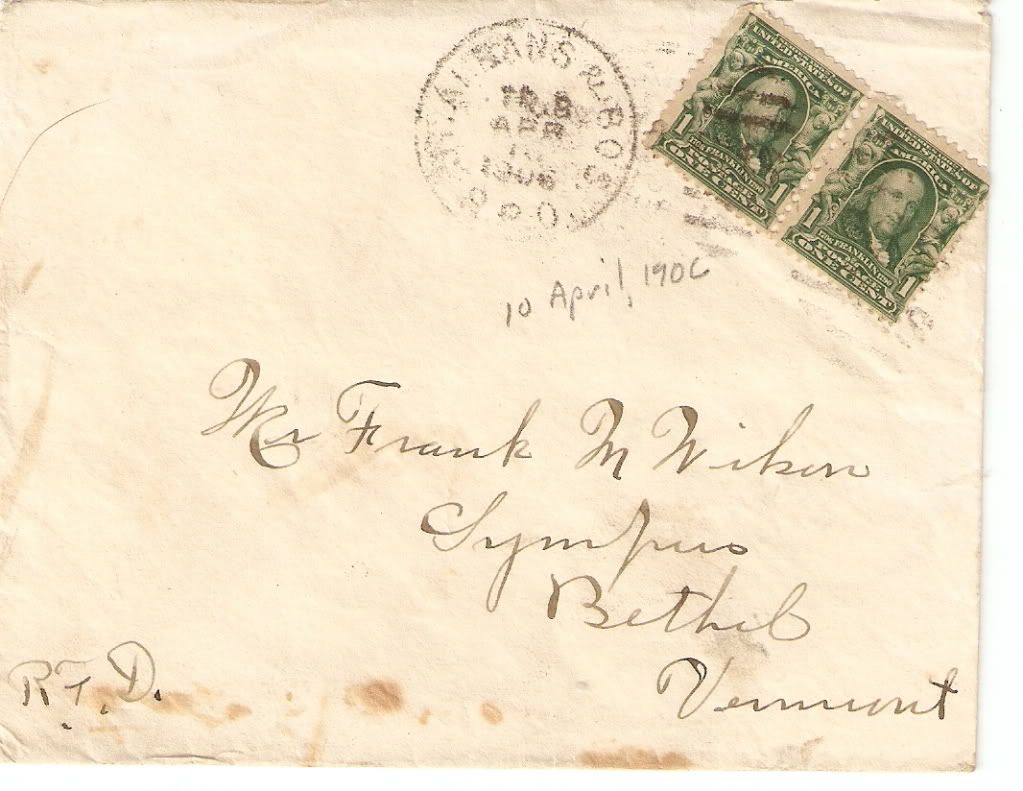 ST. ALBANS & BOS.
TR. 8
APR
10
1906
R.P.O.
UNITED STATES OF
AMERICA
1 1706 FRANKLIN 1790 1
POSTAGE
ONE CENT
UNITED STATES OF
AMERICA
1 1706 FRANKLIN 1790 1
POSTAGE
ONE CENT
10 April, 1906
Mr Frank M Wilson
Sympus
Bethel
Vermont
R.F.D.